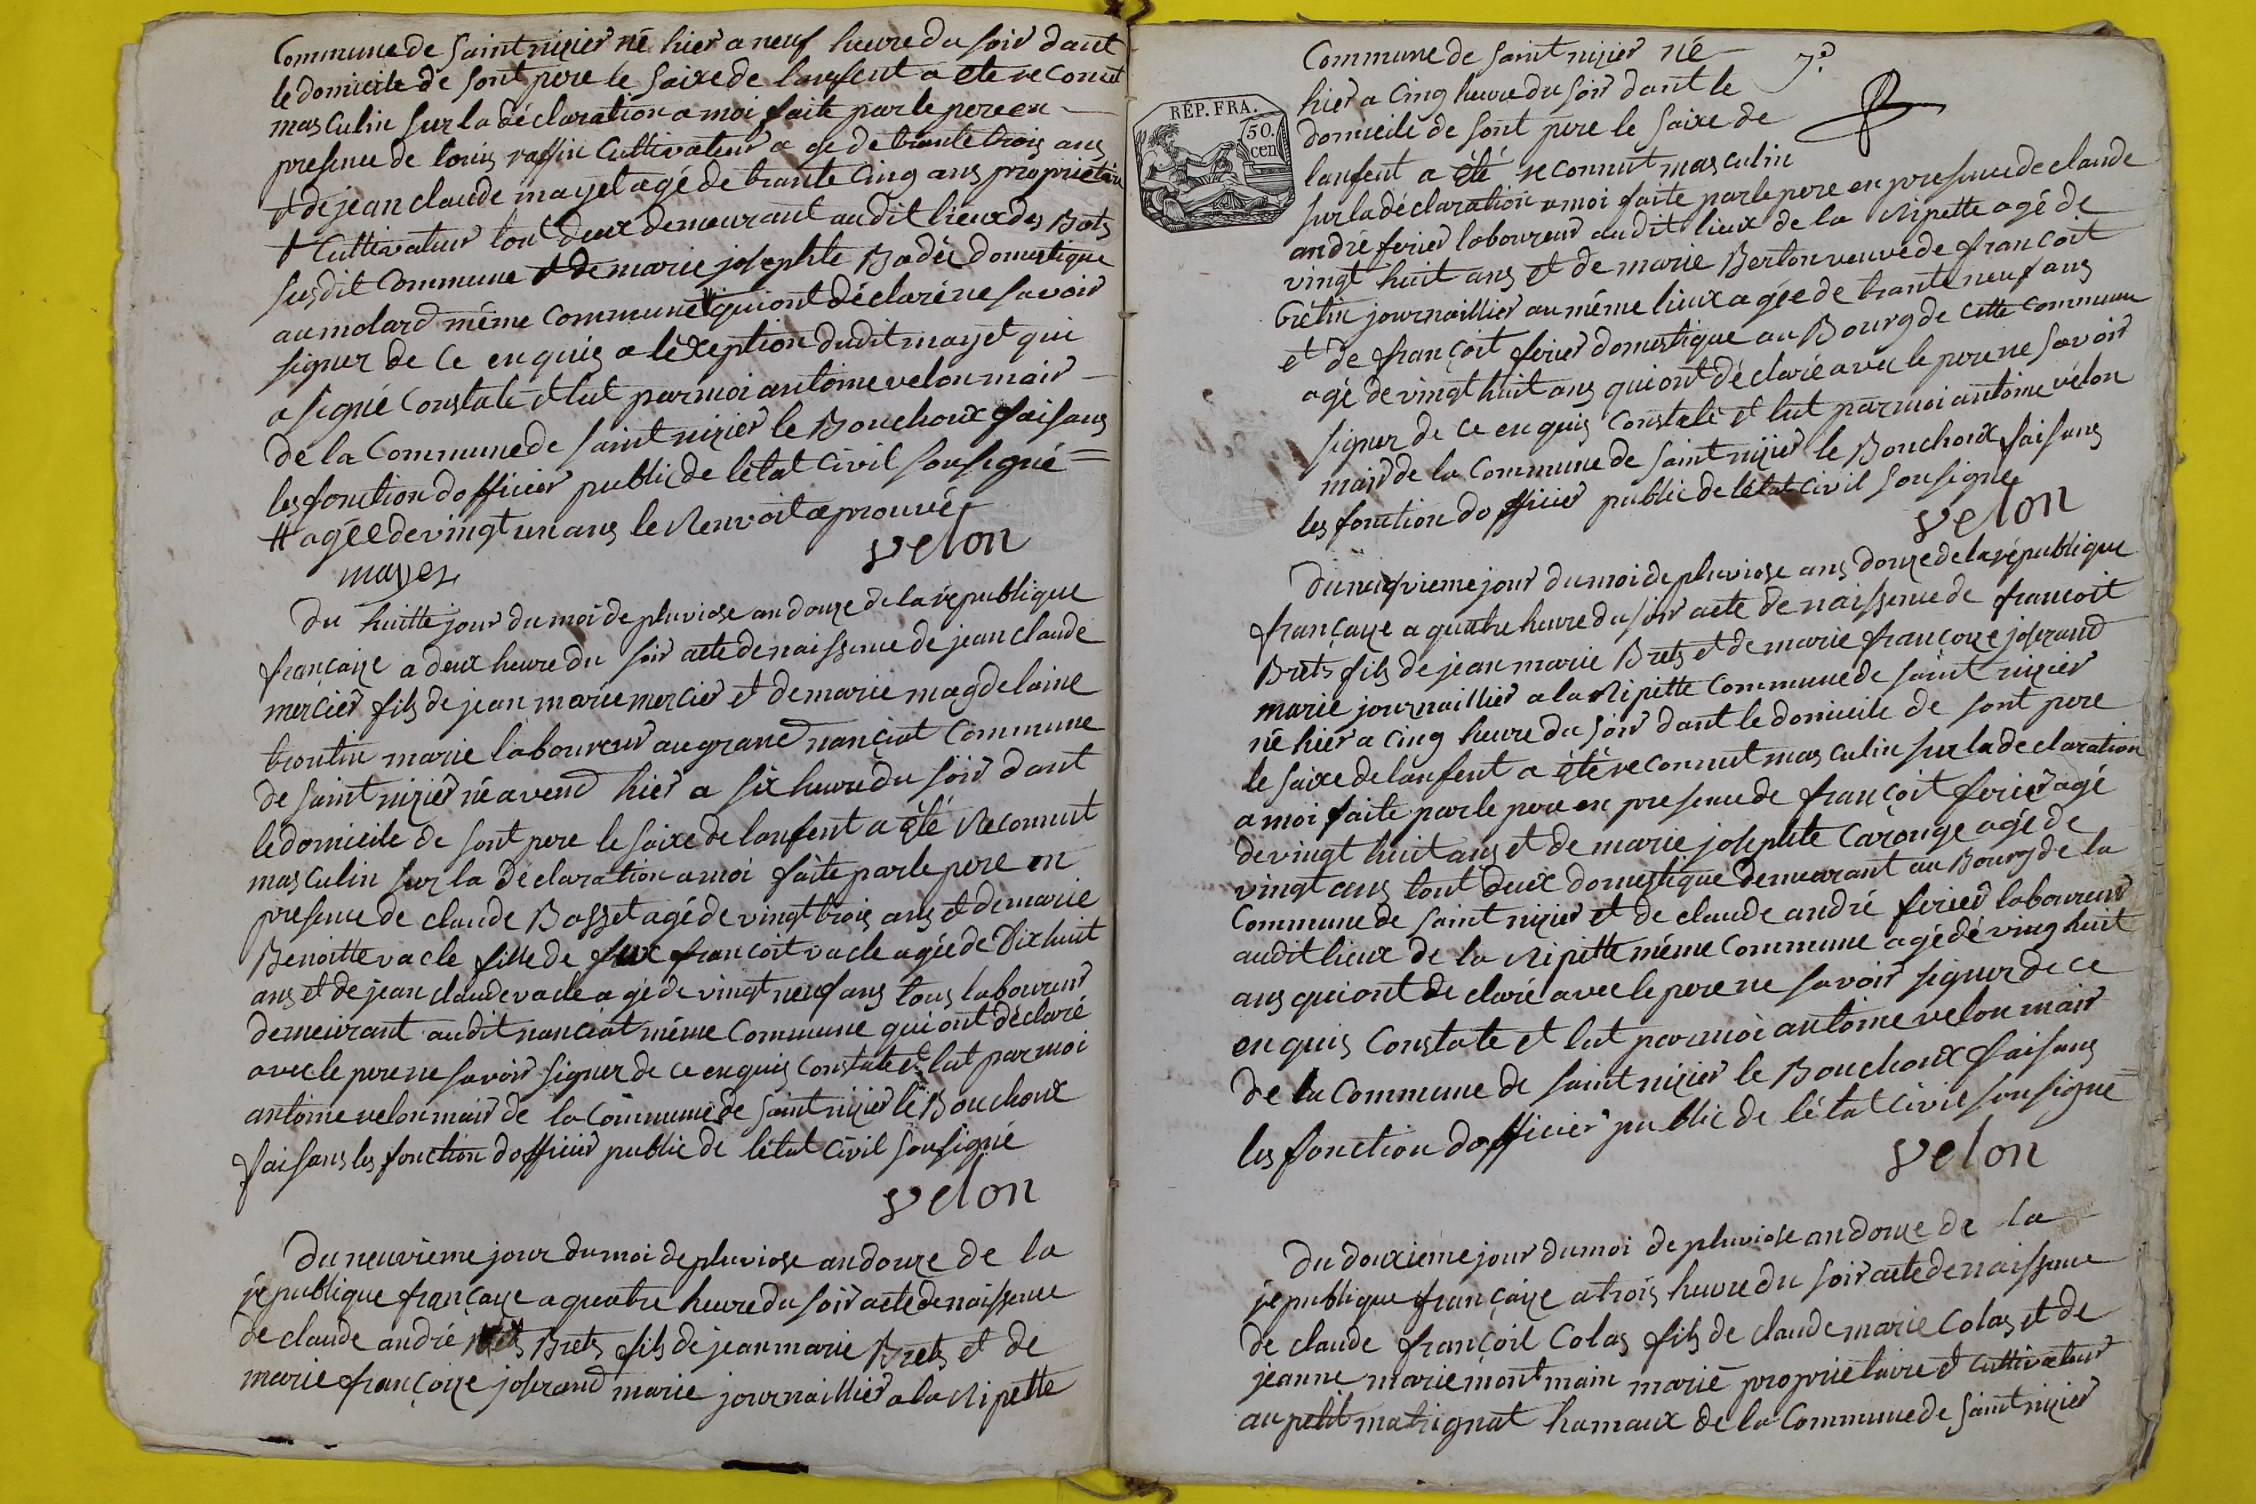 Commune de Saint nizier né hier a neuf heure du soir dant
le domicile de sont pere le saixe de lanfent a ete reconut
masculin sur la déclaration a moi faite par le pere en
presence de louis raffin cultivateur a gé de trante trois ans
et de jean claude mayet agé de trante cinq ans propriétaire
et Cultivateur tout deux demeurant audit lieux des Bots
susdit Commune et de marie josephte Badés domestique
au molard même commune # qui ont déclaré ne savoir
signer de ce enquis a léxeption dudit mayet qui
a signé constate et lut par moi antoine velon mair
de la Commune de Saint nizier le Bouchoux faisans
les fonction dofficier public de létat civil sousigné
# agéé de vingt un ans le Renvoit aprouvé
velon
mayet
Du huitte jour du moi de pluviose an douze de la république
françaize a deux heure du soir acte de naissence de jean claude
mercier fils de jean marie mercier et de marie magdelaine
trontin marié laboureur au grand nanciat Commune
de Saint nizier né avend hier a six heure du soir dant
le domicile de sont pere le saixe de lanfent a été Reconnut
masculin sur la déclaration a moi faite par le pere en
presence de claude Bosset agé de vingt trois ans et de marie
Benoitte vacle fille de feux francoit vacle agée de Dix huit
ans et de jean claude vacle a gé de vingt neuf ans tous laboureur
demeurant audit nanciat même Commune qui ont déclaré
avec le pere ne savoir signer de ce enquis constate et lut par moi
antoine velon mair de la Commune de Saint nizier le Bouchoux
faisans les fonction dofficier public de létat civil sousigné
velon
Du neuvieme jour du moi de pluviose an douze de la
république françaize a quatre heure du soir acte de naissence
de claude andré Brets fils de jean marie Brets et de
marie françoize joserand marié journaillier a la Ripette
Commune de Saint nizier né
7e
hier a Cinq heure du soir dant le
RÉP. FRA.
50.
cen
domicile de sont pere le saixe de
lanfent a été reconnut masculin
sur la déclaration a moi faite par le pere en presence de claude
andré ferier laboureur audit lieux de la Ripette agé de
vingt huit ans et de marie Berton veuve de francoit
Grétin journaillier au même lieux agée de trante neuf ans
et de françoit ferier domestique au Bourg de cette commune
agé de vingt huit ans qui ont déclaré avec le pere ne savoir
signer de ce enquis constaté et lut par moi antoine vélon
mair de la Commune de Saint nizier le Bouchoux faisans
les fonction dofficier public de létat civil sousigne
velon
Du neuvieme jour du moi de pluviose ans douze de la république
françaize a quatre heure du soir acte de naissence de francoit
Brets fils de jean marie Brets et de marie françoize joserand
marié journaillier a la Ripette Commune de saint nizier
né hier a cinq heure du soir dant le domicile de sont pere
le saixe de lanfent a été reconnut masculin sur la declaration
a moi faite par le pere en presence de françoit ferier agé
de vingt huit ans et de marie josephte Carouge agé de
vingt ans tout deux domestique demeurant au Bourg de la
Commune de Saint nizier et de claude andré ferier laboureur
audit lieux de la Ripette même Commune agé dé ving huit
ans qui ont declaré avec le pere ne savoir signer de ce
enquis Constate et lut par moi antoine velon mair
de la Commune de Saint nizier le Bouchoux faisans
les fonction dofficier public de létat civil sousigné
velon
Du douxieme jour du moi de pluviose an douze de la
république françaize a trois heure du soir acte de naissence
de claude françoit Colas fils de claude marie Colas et de
jeanne marie montmain marié proprietaire et cultivateur
au petit matignat hamaux de la Commune de Saint nizier